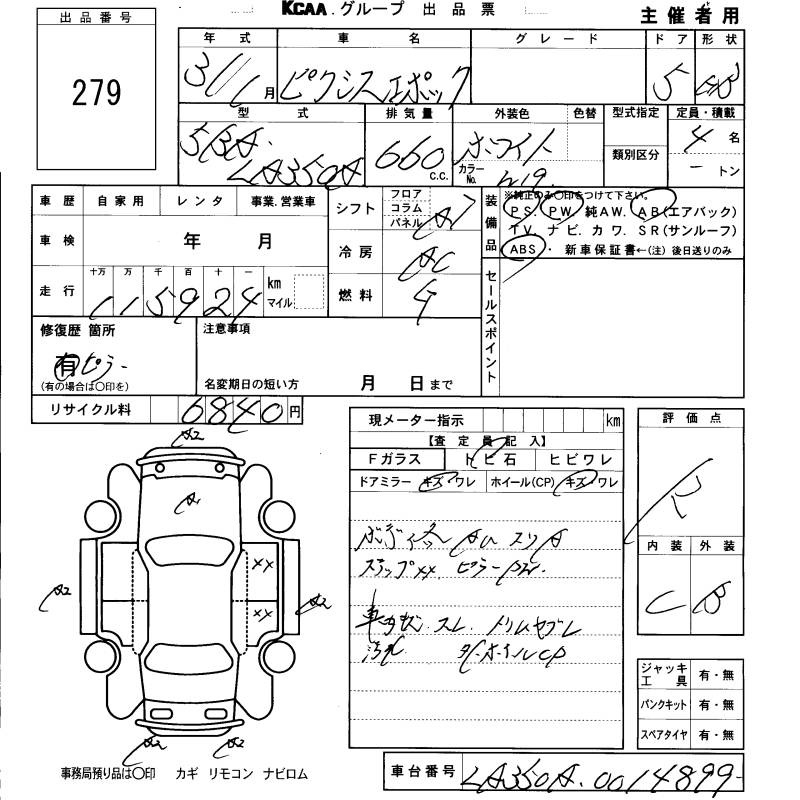 KCAA.グループ 出品票
主催者用
出品番号
279
年式 車名 グレード ドア 形状
31/1月 ピクシスエポック 5 HB
型式 排気量 外装色 色替 型式指定 定員・積載
5BA-LA350A 660 c.c. ホワイト カラーNo. W19 類別区分 4名
－トン
車歴 自家用 レンタ 事業.営業車
車検 年 月
走行 十万 万 千 百 十 一 km マイル
115924
シフト フロア コラム パネル AT
冷房 AC
燃料 G
装備品
※純正のみ○印をつけて下さい。
PS. PW. 純AW. AB(エアバック)
TV. ナビ. カワ. SR(サンルーフ)
ABS・ 新車保証書←(注) 後日送りのみ
セールスポイント
修復歴 箇所
有 ピラー
(有の場合は○印を)
注意事項
名変期日の短い方 月 日まで
リサイクル料 6840円
現メーター指示 km
【査定員記入】
Fガラス トビ石 ヒビワレ
ドアミラー キズ・ワレ ホイール(CP) キズ・ワレ
AU スリA
ステップXX ピラーPW.
車内キズ. スレ. トリムヤブレ
汚れ 穴. ホイルCP
評価点
R
内装 外装
C B
A2
A1
XX
XX
A2
A2
A2
A2
ジャッキ工具 有・無
パンクキット 有・無
スペアタイヤ 有・無
事務局預り品は○印 カギ リモコン ナビロム
車台番号 LA350A-0014899-